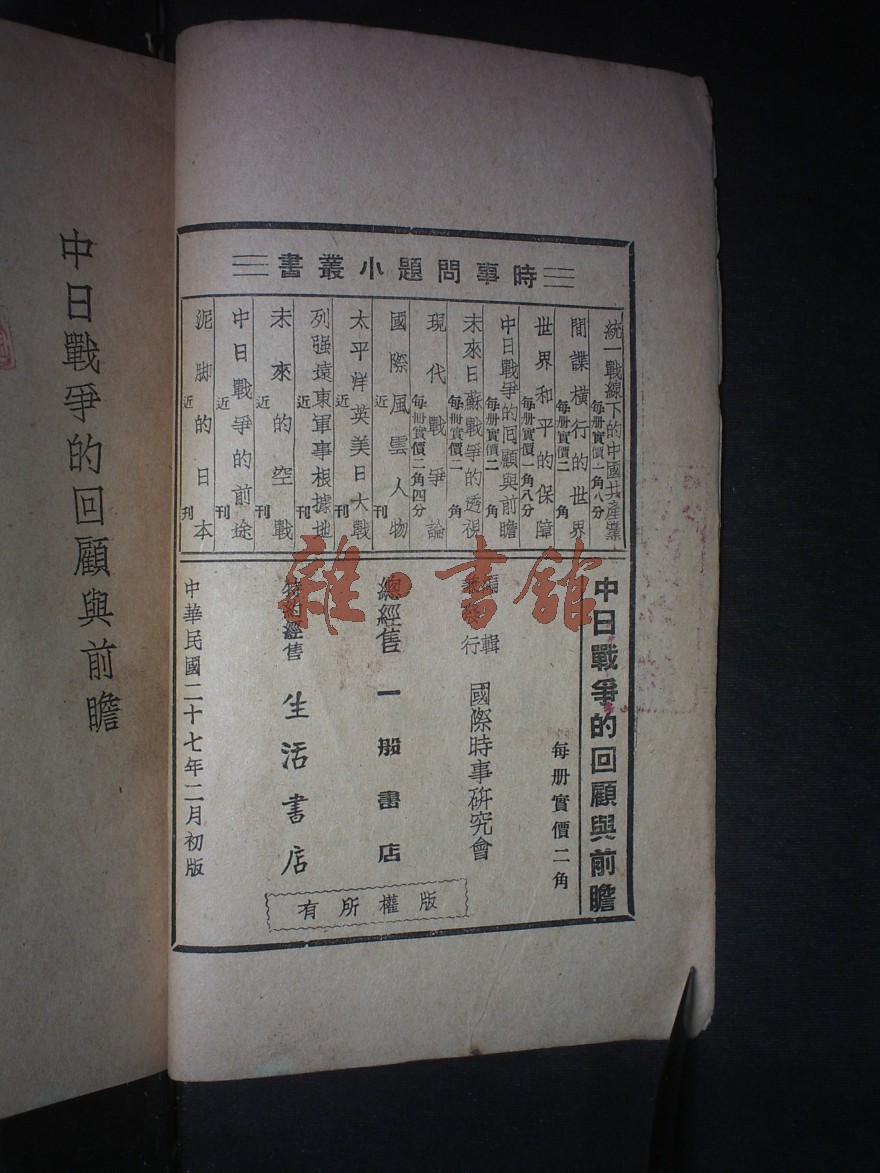 時事問題小叢書
統一戰線下的中國共產黨
每册實價一角八分
間諜橫行的世界
每册實價二角
世界和平的保障
每册實價一角八分
中日戰爭的回顧與前瞻
每册實價二角
未來日蘇戰爭的透視
每册實價二角
現代戰爭論
每册實價二角四分
國際風雲人物
近刊
太平洋英美日大戰
近刊
列强遠東軍事根據地
近刊
未來的空戰
近刊
中日戰爭的前途
近刊
泥脚的日本
近刊
中日戰爭的回顧與前瞻
每册實價二角
編輯
發行
國際時事研究會
總經售 一般書店
特約經售 生活書店
中華民國二十七年二月初版
版權所有
中日戰爭的回顧與前瞻
雜·書館